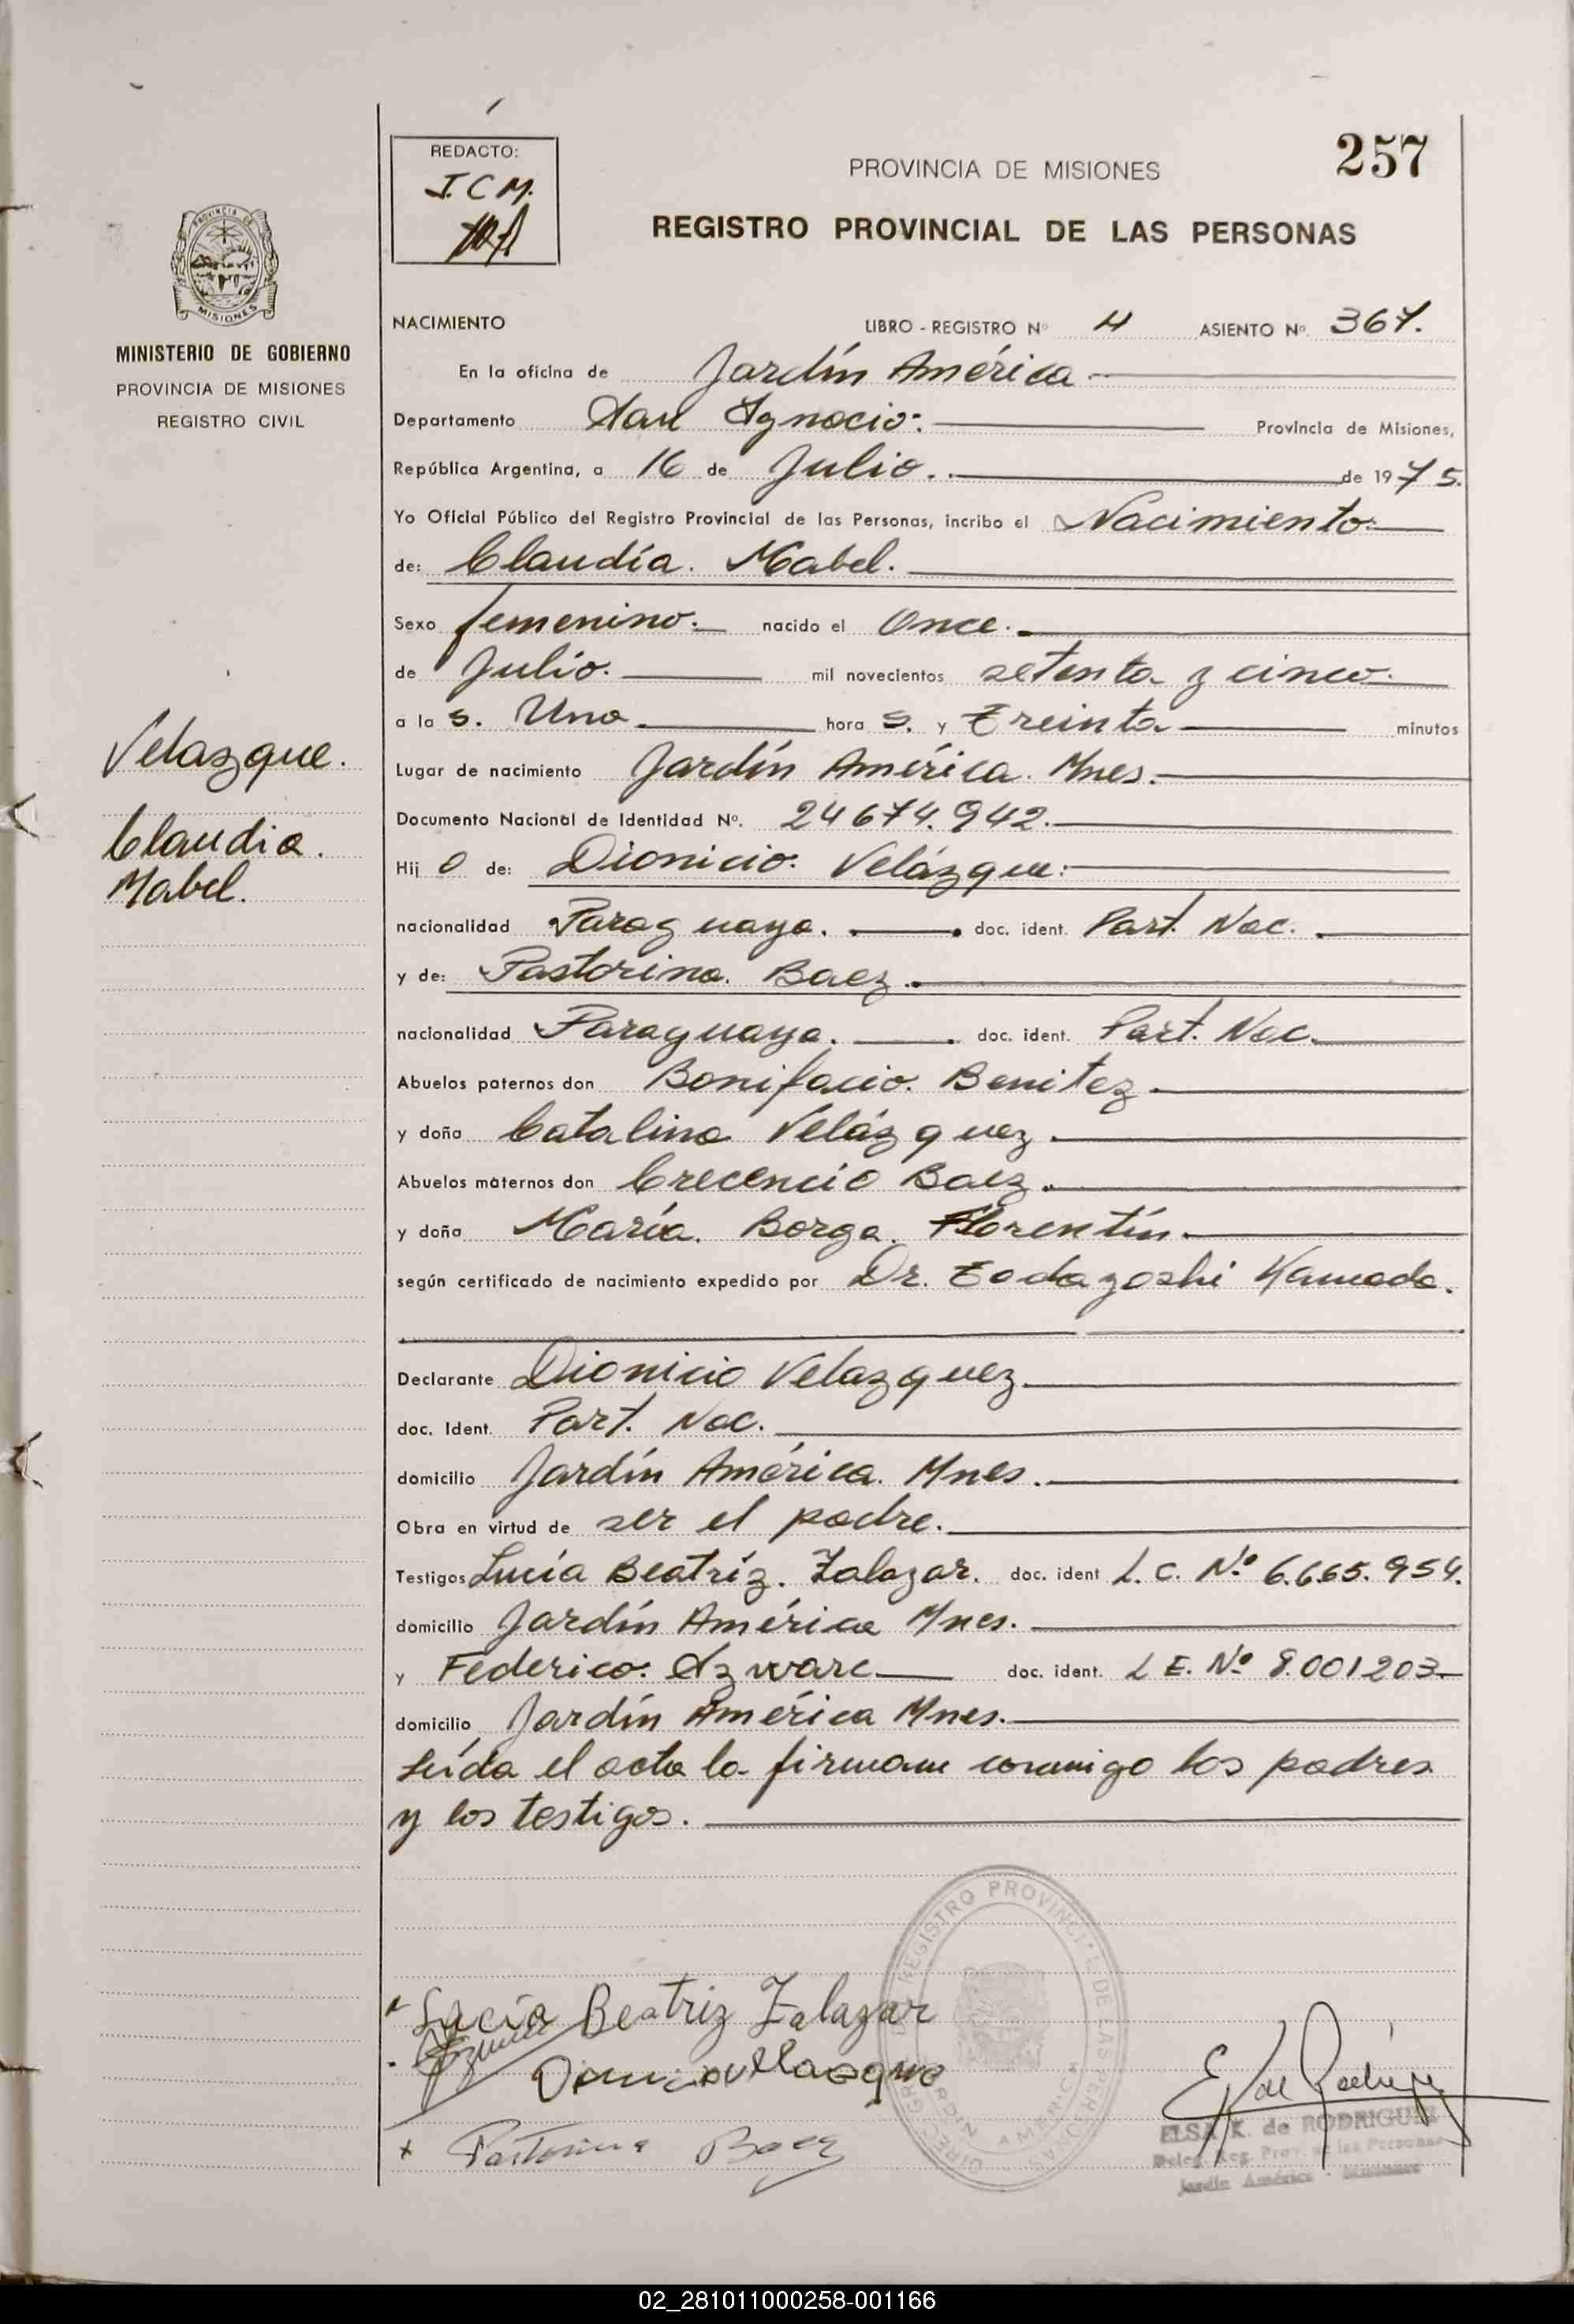 257
REDACTO:
J.C.M.
PROVINCIA DE MISIONES
REGISTRO PROVINCIAL DE LAS PERSONAS
PROVINCIA DE
MISIONES
MINISTERIO DE GOBIERNO
PROVINCIA DE MISIONES
REGISTRO CIVIL
NACIMIENTO LIBRO - REGISTRO Nº 4 ASIENTO Nº 367.
En la oficina de Jardín América
Departamento San Ignacio. Provincia de Misiones,
República Argentina, a 16 de Julio. de 1975.
Yo Oficial Público del Registro Provincial de las Personas, incribo el Nacimiento
de: Claudia. Mabel.
Sexo femenino. nacido el Once.
de Julio. mil novecientos setenta y cinco.
a la s. Una hora s. y Treinta minutos
Velazque.
Lugar de nacimiento Jardín América. Mnes.
Documento Nacional de Identidad Nº. 24674.942.
Claudia.
Mabel.
Hij o de: Dionicio. Velázque.
nacionalidad Paraguaya. doc. ident. Part. Nac.
y de: Pastorina. Baez.
nacionalidad Paraguaya. doc. ident. Part. Nac.
Abuelos paternos don Bonifacio. Benitez
y doña Catalina Velázquez
Abuelos maternos don Crecencio Baez.
y doña María. Borga. Florentín
según certificado de nacimiento expedido por Dr. Kamada.
Declarante Dionicio Velazquez
doc. Ident. Part. Nac.
domicilio Jardín América. Mnes.
Obra en virtud de ser el padre.
Testigos Lucía Beatríz. Zalazar. doc. ident L. C. Nº 6.665.954.
domicilio Jardín América Mnes.
y Federico. Szwarc doc. ident. L E. Nº 8.001203
domicilio Jardín América Mnes.
Leída el acta la firman conmigo los padres
y los testigos.
REGISTRO PROVINCIAL DE LAS PERSONAS
JARDIN AMERICA
Lucía Beatriz Zalazar
Pastorina Baez
ELSA K. de RODRIGUEZ
Deleg. Reg. Prov. de las Personas
Jardín América - Misiones
02_281011000258-001166